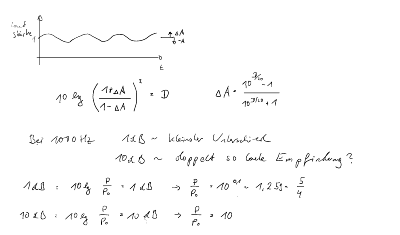 Lautstärke
1
ΔA
t
10 lg ((1+ΔA)/(1-ΔA))² = D    ΔA = (10^(D/20) - 1)/(10^(D/20) + 1)
Bei 1000 Hz    1 dB ~ kleinster Unterschied
10 dB ~ doppelt so laute Empfindung?
1 dB = 10 lg P/P₀ = 1 dB → P/P₀ = 10^0,1 = 1,259 = 5/4
10 dB = 10 lg P/P₀ = 10 dB → P/P₀ = 10